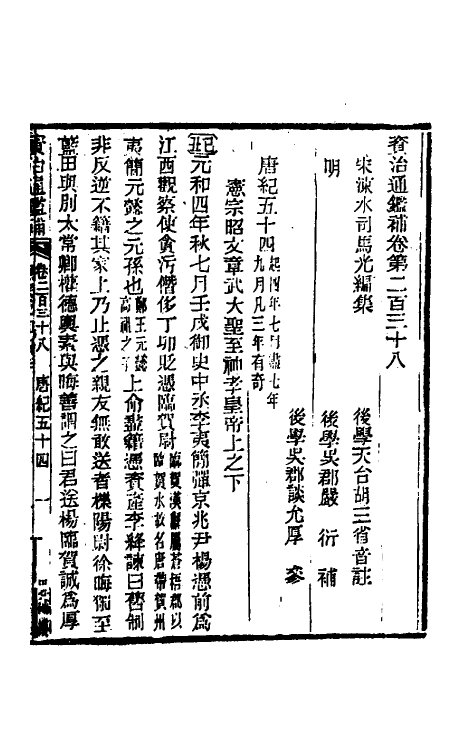 資治通鑑補卷第二百三十八
宋涑水司馬光編集
後學天台胡三省音註
明
後學吳郡嚴 衍 補
後學吳郡談允厚 參
唐紀五十四起四年七月盡七年九月凡三年有奇
憲宗昭文章武大聖至神孝皇帝上之下
己丑元和四年秋七月壬戌御史中丞李夷簡彈京兆尹楊憑前爲
江西觀察使貪污僭侈丁卯貶憑臨賀尉臨賀漢縣屬蒼梧郡以臨賀水故名唐帶賀州
夷簡元懿之元孫也鄭王元懿高祖之子上命盡籍憑資產李絳諫曰舊制
非反逆不籍其家上乃止憑之親友無敢送者櫟陽尉徐晦獨至
藍田與別太常卿權德輿素與晦善謂之曰君送楊臨賀誠爲厚
資治通鑑補 卷二百三十八 唐紀五十四 一